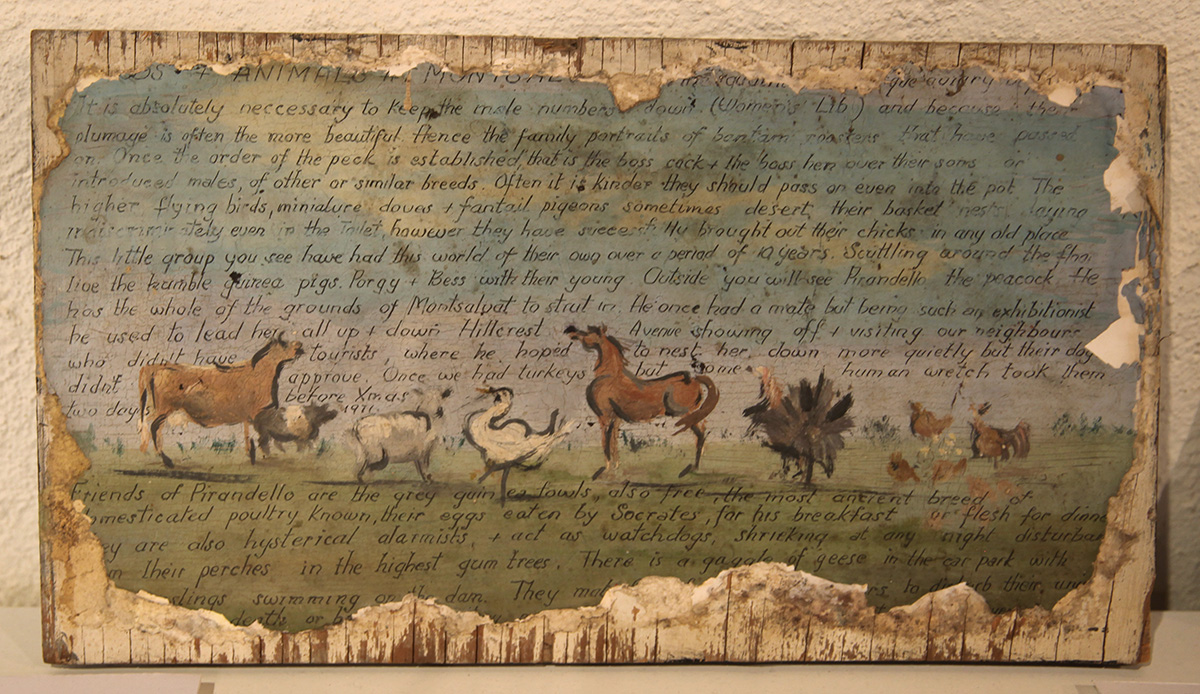 + ANIMALS
It is absolutely neccessary to keep the male numbers down (Women's Lib) and because their
plumage is often the more beautiful. Hence the family portraits of bantam roosters that have passed
on. Once the order of the peck is established, that is the boss cock + the boss hen over their sons or
introduced males, of other or similar breeds. Often it is kinder they should pass on even into the pot. The
higher flying birds, miniature doves + fantail pigeons sometimes desert their basket nests laying
even in the Toilet, however they have brought out their chicks in any old place
This little group you see have had this world of their own over a period of 10 years. Scuttling around the
live the humble guinea pigs. Porgy + Bess with their young. Outside you will see Pirandello the peacock He
has the whole of the grounds of Montsalvat to strut in. He once had a mate but being such an exhibitionist
he used to lead her all up + down Hillcrest Avenue showing off + visiting our neighbours
who didn't have tourists, where he hoped to nest her down more quietly but their dog
didn't approve. Once we had turkeys but some human wretch took them
two days before Xmas
1971.
Friends of Pirandello are the grey guinea fowls, also free, the most ancient breed of
domesticated poultry known, their eggs eaten by Socrates, for his breakfast or flesh for
are also hysterical alarmists, + act as watchdogs, shrieking at any night
their perches in the highest gum trees. There is a gaggle of geese in the car park with
swimming on the dam. They to disturb their
death or